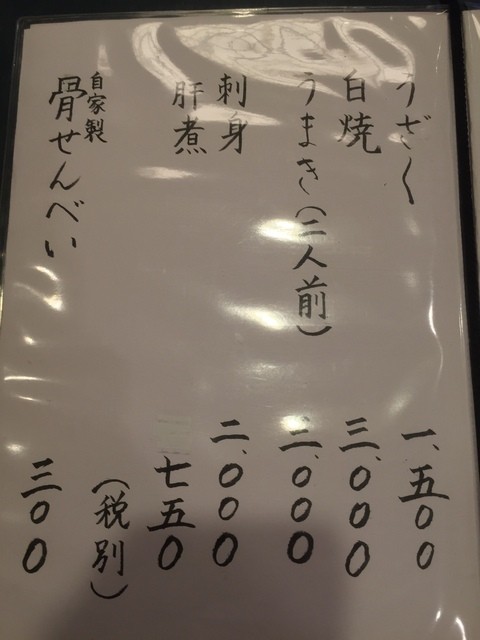 うざく 一、五〇〇
白焼 三、〇〇〇
うまき(二人前) 二、〇〇〇
刺身 二、〇〇〇
肝煮 七五〇
(税別)
自家製
骨せんべい 三〇〇